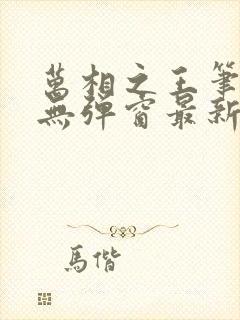 萬相之王筆
無彈窗最新
馬偕